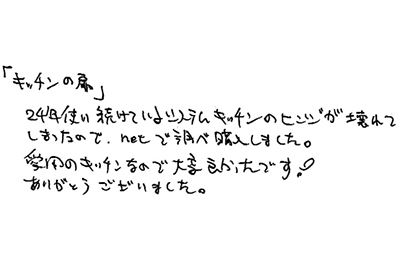 「キッチンの扉」
24年使い続けているシステムキッチンのヒンジが壊れて
しまったので、netで調べ購入しました。
愛用のキッチンなので大変良かったです!
ありがとうございました。